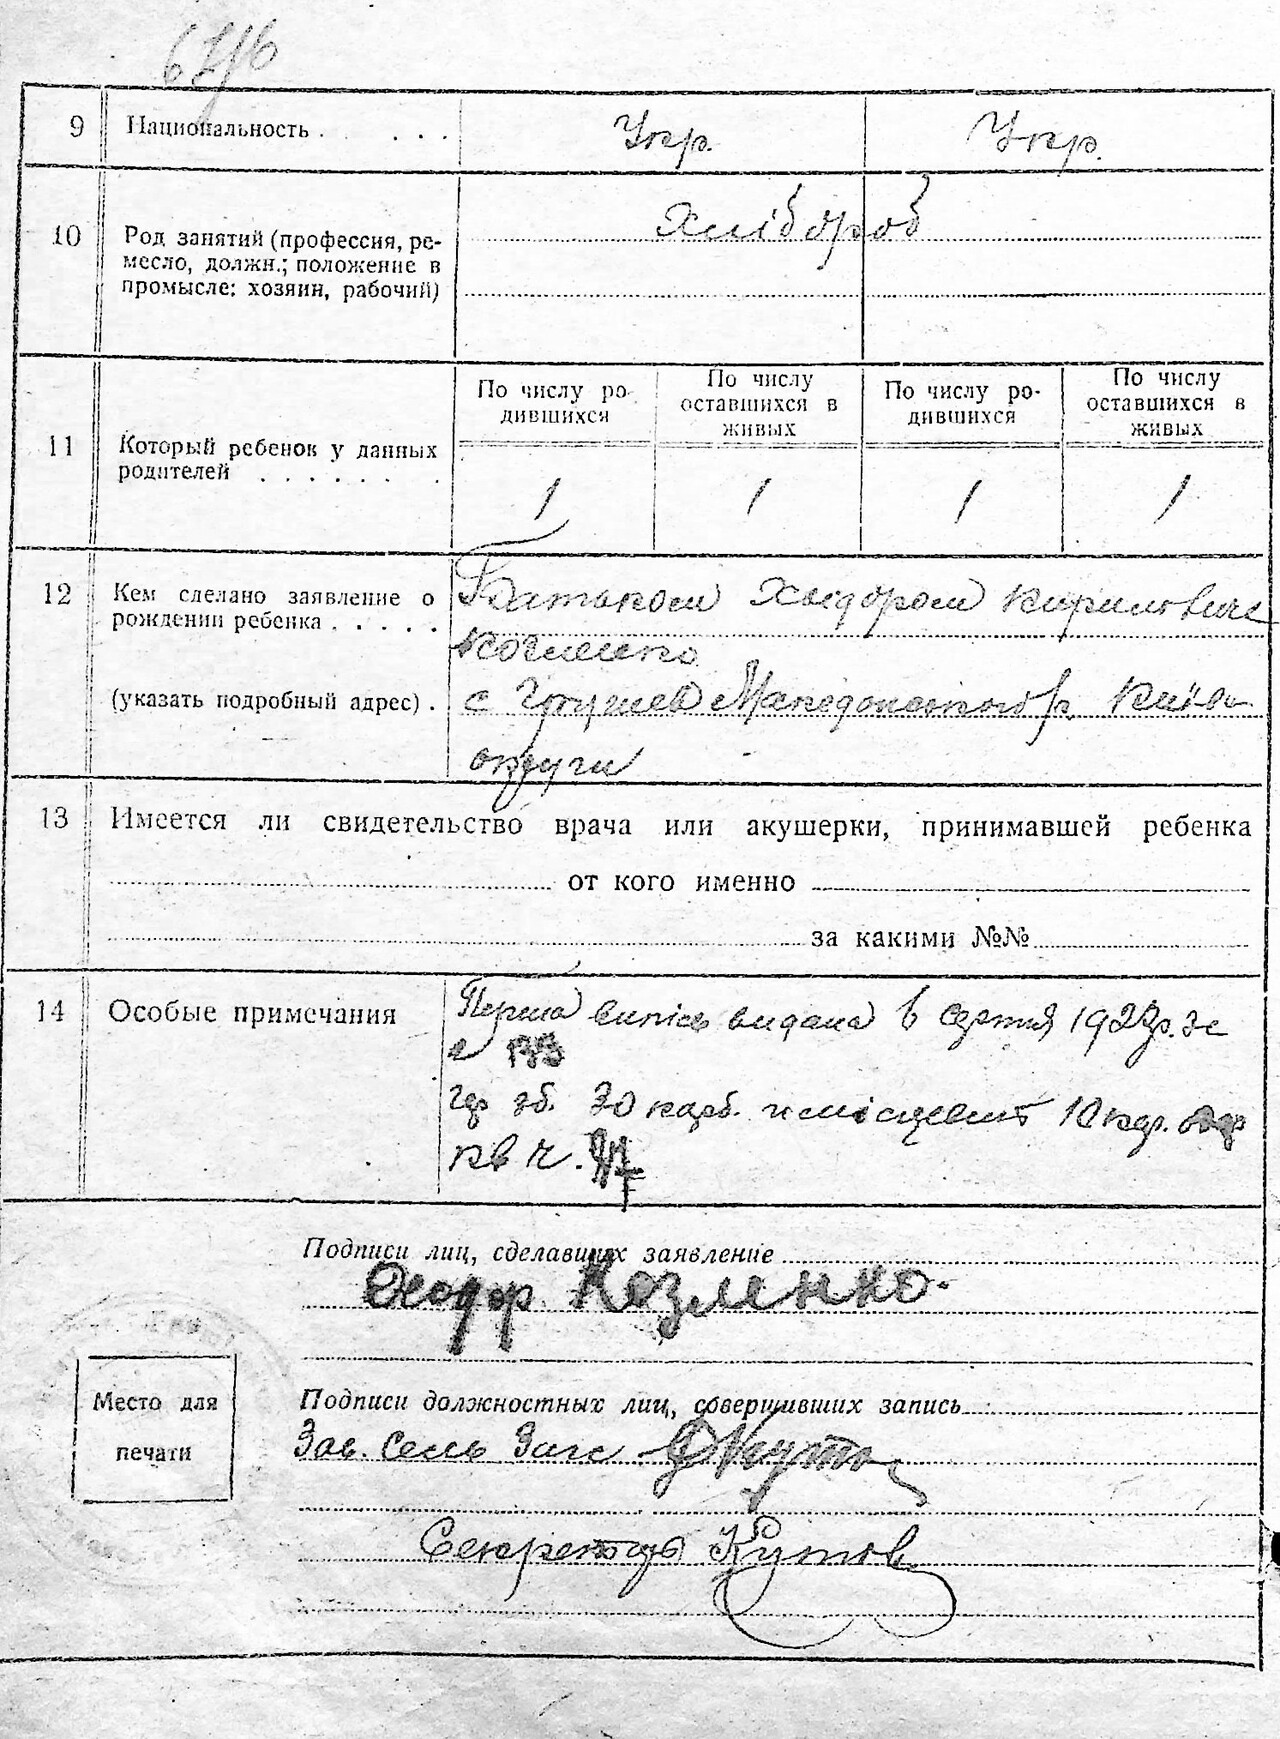 9 Национальность . . . . Укр. Укр.
10 Род занятий (профессия, ре-
месло, должн.; положение в
промысле: хозяин, рабочий)
Хлібороб
11 Который ребенок у данных
родителей . . . . . . .
По числу ро-
дившихся
По числу
оставшихся в
живых
По числу ро-
дившихся
По числу
оставшихся в
живых
1 1 1 1
12 Кем сделано заявление о
рождении ребенка . . . . .
(указать подробный адрес) .
Батьком Хведором Кирилович
Козленко
с Грушев Македонського р. Київ
округи
13 Имеется ли свидетельство врача или акушерки, принимавшей ребенка
от кого именно
за какими №№
14 Особые примечания
Перша випись видана в серпня 192 р. за
133
зб. 30 карб. и місцевит 10
кв ч.
Подписи лиц, сделавших заявление
Хеодор Козленко.
Место для
печати
Подписи должностных лиц, совершивших запись
Зав. Сель Загс
Секретарь Кутов